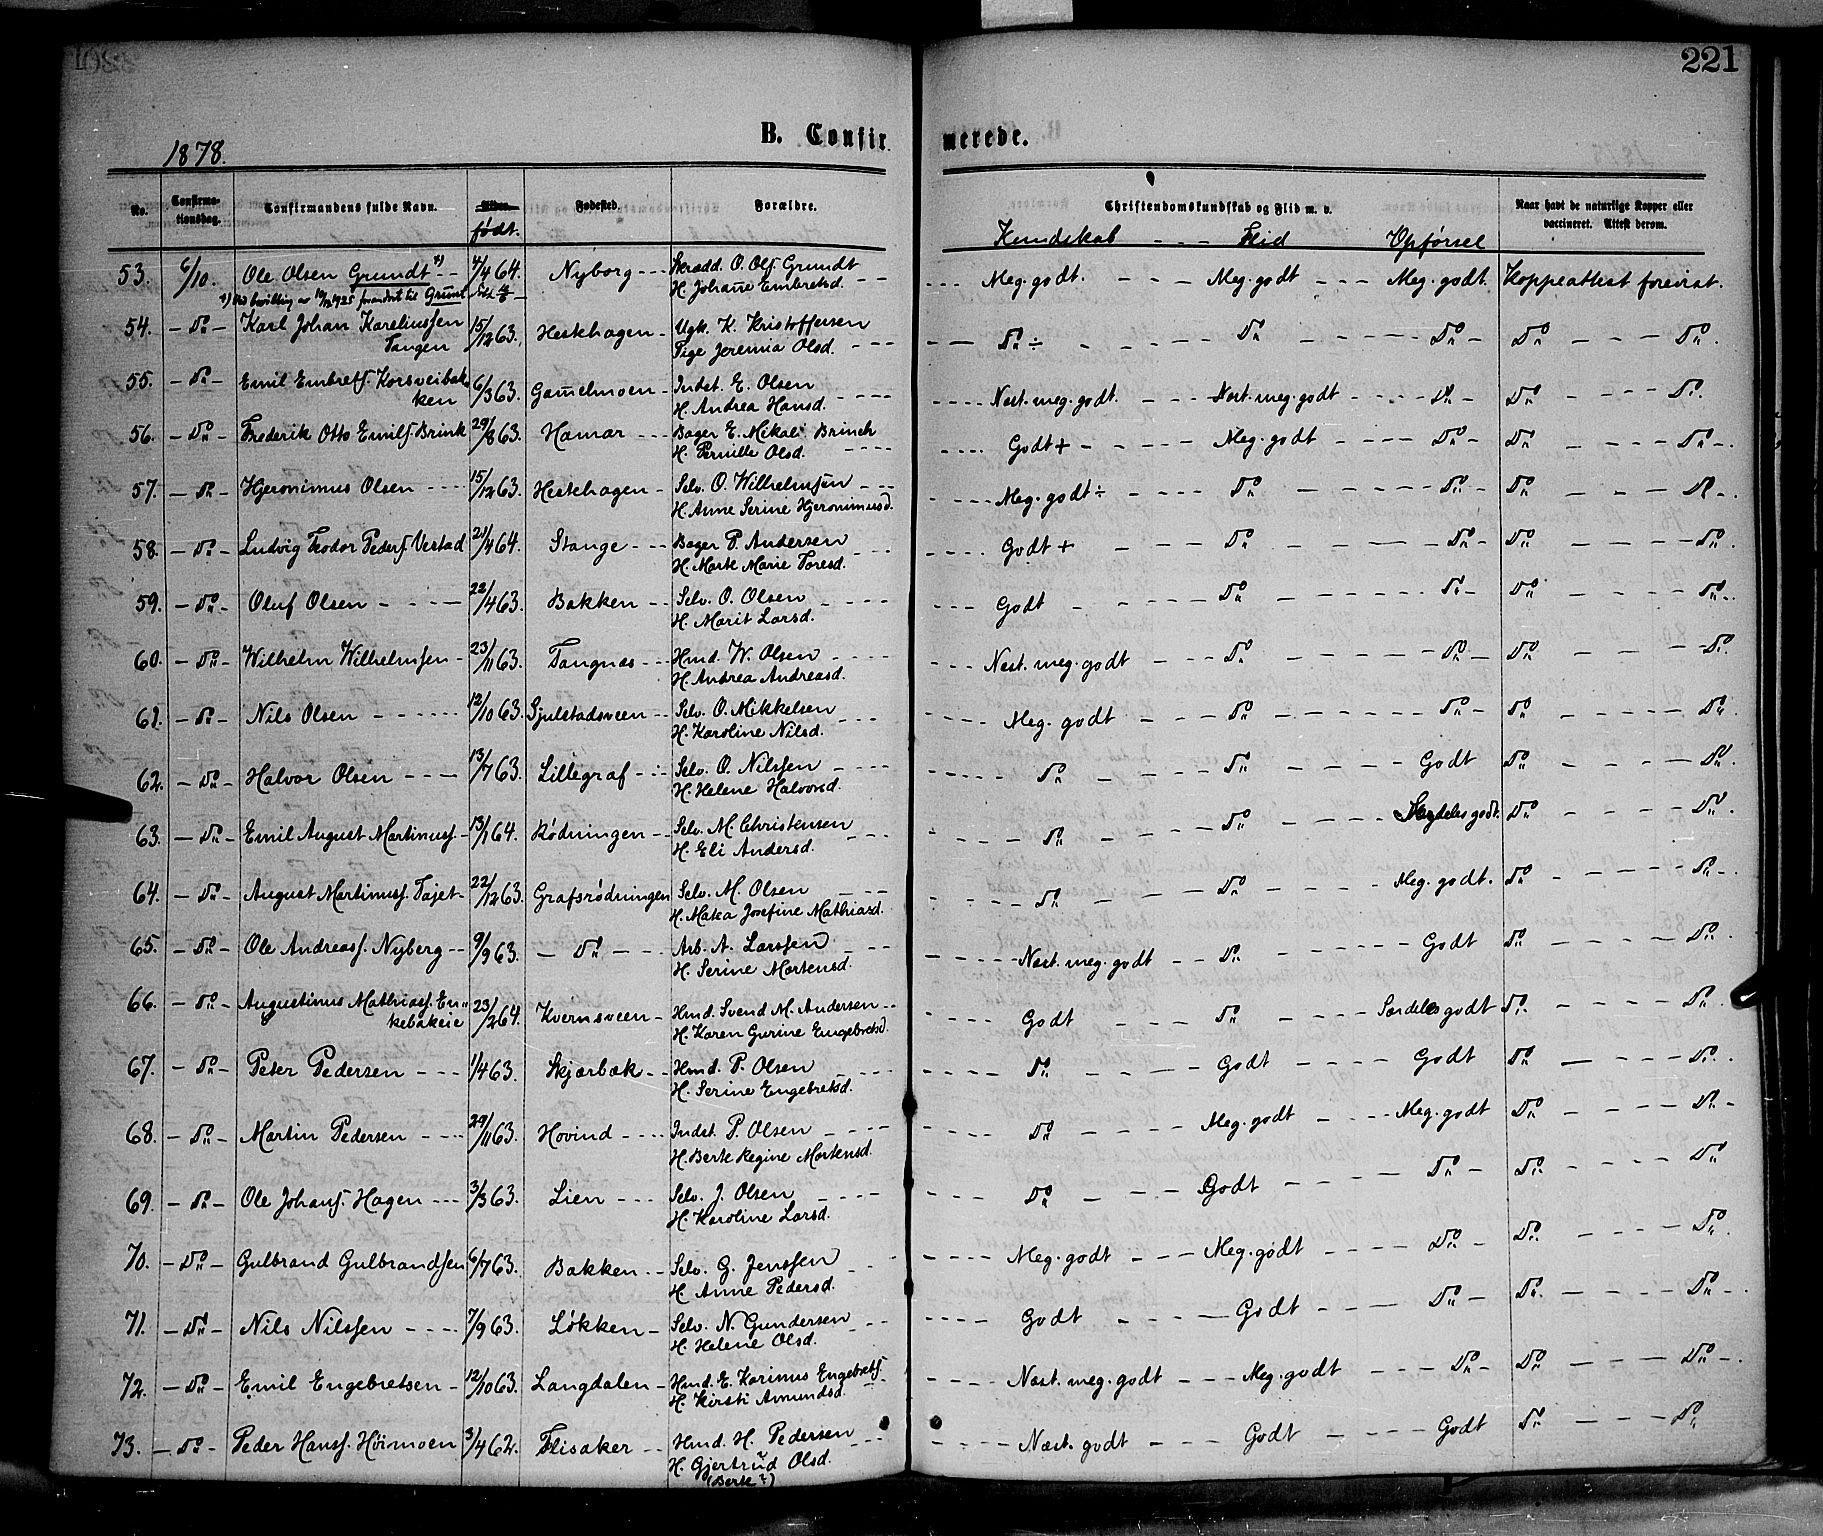 221
1878.
B. Confirmerede.
No. Confirmationsdag. Confirmandens fulde Navn. Alder. født. Fødested. Forældre. Christendomskundskab og Flid m. v. Naar havt de naturlige Kopper eller vaccineret. Attest derom.
Kundskab - - - Flid Opførsel
53. 6/10. Ole Olsen Grundt *) - - 4/4 64. Nyborg - - - Skrædd. O. Ols. Grundt Meg. godt. - - - Meg. godt - - - Meg. godt. Koppeattest forevist.
H. Johanne Embretsd.
*) Ved bevilling av 1925 forandret til Grunt
54. - Do - Karl Johan Kareliussen 15/12 63. Hestehagen - Ugk. K. Kristoffersen Do ÷ Do Do Do Do
Tangen Pige Jeremia Olsd.
55. - Do - Emil Embrets. Korsveibak 6/3 63. Gammelmoen - Indst. E. Olsen Næst. meg. godt. Næst. meg. godt Do Do Do
ken H. Andrea Hansd.
56. - Do - Frederik Otto Emils. Brink 29/8 63. Hamar - - - Bager E. Mikal Brinch Godt + Meg. godt Do Do Do
H. Pernille Olsd.
57. - Do - Hjeronimus Olsen - - - 15/12 63. Hestehagen - Selv. O. Wilhelmsen Meg. godt ÷ Do Do Do Do
H. Anne Serine Hjeronimusd.
58. - Do - Ludvig Teodor Peders. Vestad 21/4 64. Stange - - - Bager P. Andersen Godt + Do Do Do Do
H. Marte Marie Toresd.
59. - Do - Oluf Olsen - - - 22/4 63. Bakken - - Selv. O. Olsen Godt Do Do Do Do
H. Marit Larsd.
60. - Do - Wilhelm Wilhelmsen - 23/11 63. Tangnæs - - - Hmd. W. Olsen Næst. meg. godt Do Do Do Do
H. Andrea Andreasd.
61. - Do - Nils Olsen - - - 12/10 63. Gjulstadsveen - - Selv. O. Mikkelsen Meg. godt Do Do Do Do
H. Karoline Nilsd.
62. - Do - Halvor Olsen - - - 13/7 63. Lillegraf - - - Selv. O. Nilssen Do Do Godt Do Do
H. Helene Halvorsd.
63. - Do - Emil August Martinuss. - 13/1 64. Rødningen - Selv. M. Christensen Do Do Meg. godt. Do Do
H. Eli Andersd.
64. - Do - August Martinuss. Tajet - 22/12 63. Grafsrødningen Selv. M. Olsen Do Do Meg. godt. Do Do
H. Matea Josefine Mathiasd.
65. - Do - Ole Andreass. Nyberg - - 9/9 63. - Do - Arb. A. Larssen Næst. meg. godt Do Godt Do Do
H. Serine Mortensd.
66. - Do - Augustinus Mathiass. En- 23/2 64. Kvernsveen - Hmd. Svend M. Andersen Godt Do Særdeles godt Do Do
kebakeie H. Karen Gurine Engebretsd.
67. - Do - Peter Pedersen - - - 1/4 63. Skjærbæk - - Hmd. P. Olsen Do Godt Godt Do Do
H. Serine Engebretsd.
68. - Do - Martin Pedersen - - - 29/11 63. Hovind - - - Indst. P. Olsen Do Meg. godt Meg. godt Do Do
H. Berte Regine Mortensd.
69. - Do - Ole Johans. Hagen - - - 3/3 63. Lien - - - Selv. J. Olsen Do Godt Do Do Do
H. Karoline Larsd.
70. - Do - Gulbrand Gulbrandsen 6/7 63. Bakken - - Selv. G. Jenssen Meg. godt Meg. godt Do Do Do
H. Anne Pedersd.
71. - Do - Nils Nilssen - - - 7/9 63. Løkken - Selv. N. Gundersen Godt Godt Do Do Do
H. Helene Olsd.
72. - Do - Emil Engebretsen - 12/10 63. Langdalen - Hmd. E. Karinus Engebrets. Næst. meg. godt Meg. godt Do Do Do
H. Kirsti Amundsd.
73. - Do - Peder Hans. Høimoen 3/4 62. Flisaker - - Hmd. H. Pedersen Næst. godt Godt Godt Do Do
H. Gjertrud Olsd.
(Berte?)